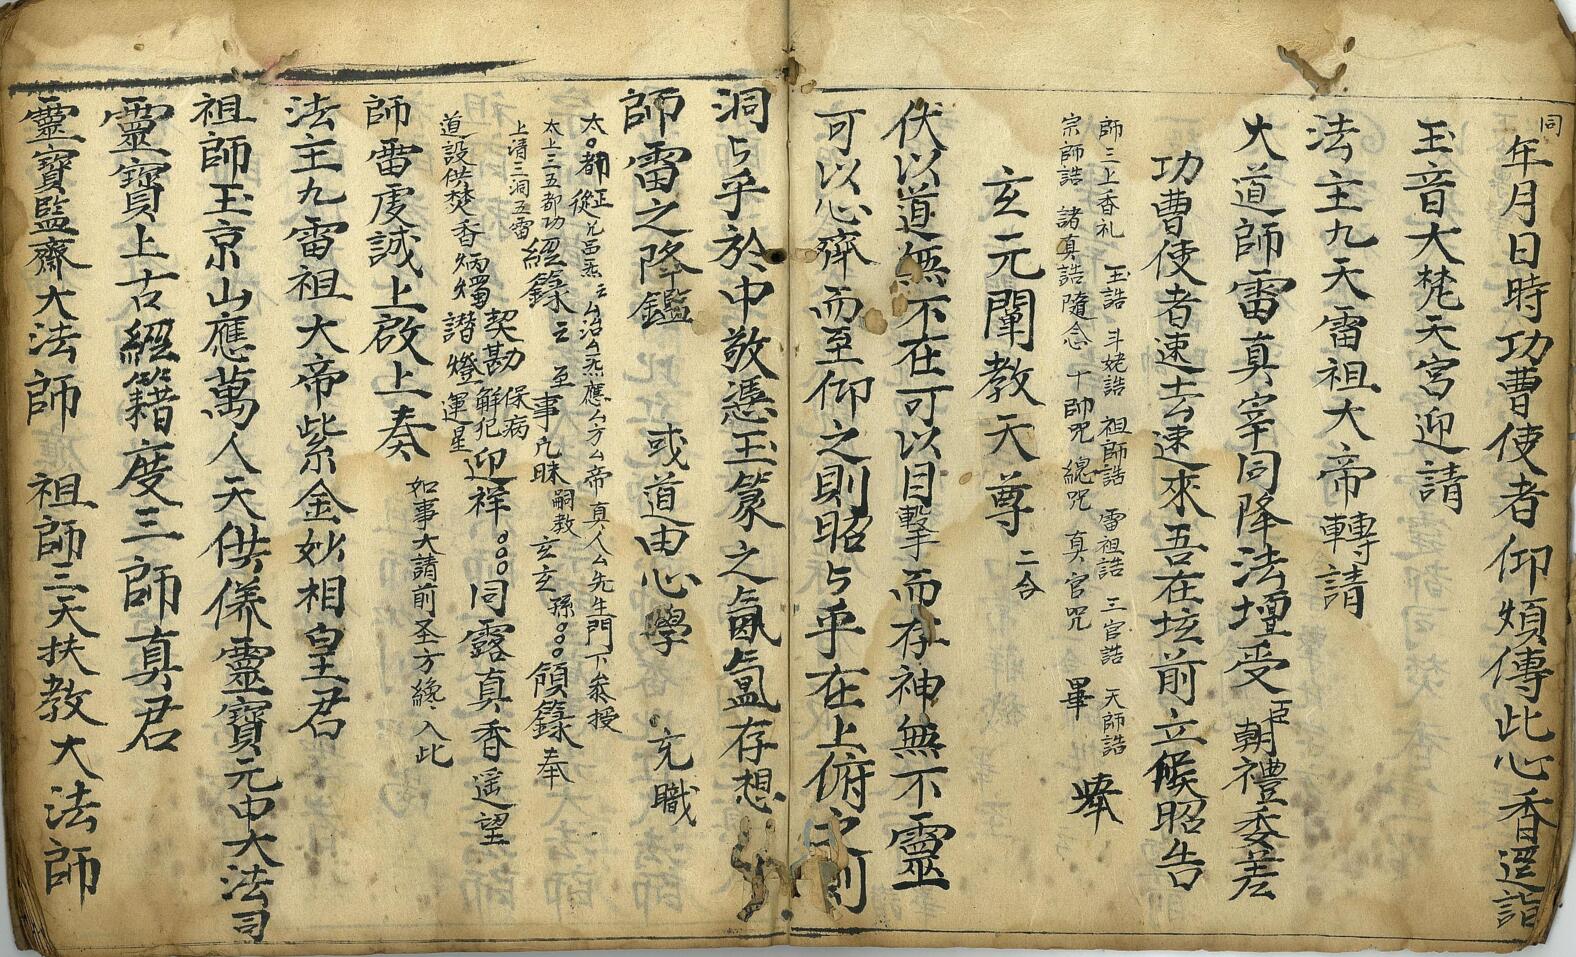 同
年月日時功曹使者仰煩傳此心香逕詣
玉音大梵天宮迎請
法主九天雷祖大帝轉請
大道師雷真宰同降法壇受臣朝禮委差
功曹使者速去速來吾在垓前立候昭告
師三上香礼 玉誥 斗姥誥 祖師誥 雷祖誥 三官誥 天師誥
宗師誥 諸真誥隨念 十帥咒 總咒 真官咒 畢
玄元闡教天尊 二合
伏以道無不在可以目擊而存神無不靈
可以心齊而至仰之則昭与乎在上俯之則
洞与乎於中敬憑玉篆之氤氳存想
師雷之降鑑 或道由心學 充職
太。都 從 治 炁應 方 帝真人 先生門下 授
太上三五都功
上清三洞五雷
經籙 至事凡昧嗣教玄玄孫。。。領籙奉
道設供焚香炳燭
契勘 保病
諧燈 解犯 運星 迎祥。。。同露真香遥望
如事大請前圣方纔入此
師雷虔誠上啟上奏
法主九雷祖大帝紫金妙相皇君
祖師玉京山應萬人天供儀靈寶元中大法司
靈寶上古經籍度三師真君
靈寶監齋大法師 祖師三天扶教大法師